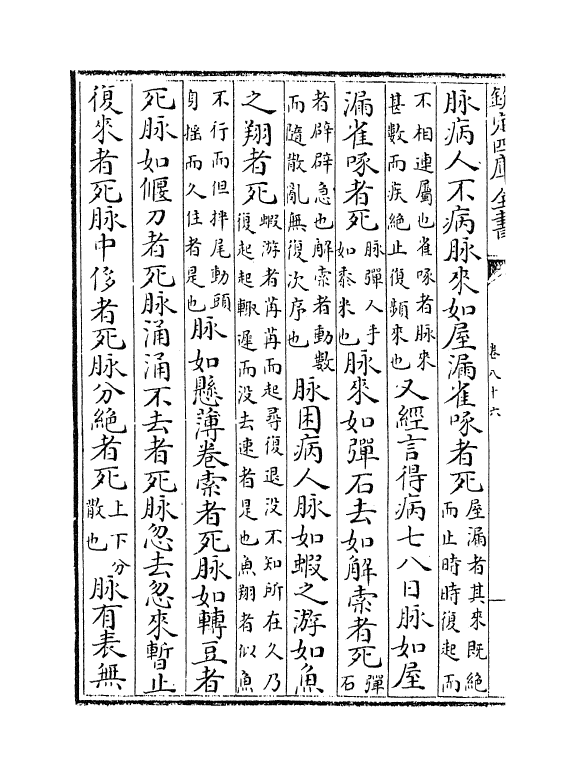 欽定四庫全書
卷八十六
脉病人不病脉來如屋漏雀啄者死屋漏者其來既絶而止時時復起而
不相連屬也雀啄者脉來甚數而疾絶止復頻來也又經言得病七八日脉如屋
漏雀啄者死脉彈人手如黍米也脉來如彈石去如解索者死彈石
者辟辟急也解索者動數而隨散亂無復次序也脉困病人脉如蝦之游如魚
之翔者死蝦游者苒苒而起尋復退没不知所在久乃復起起輙遲而没去速者是也魚翔者似魚
不行而但掉尾動頭身揺而久住者是也脉如懸薄卷索者死脉如轉豆者
死脉如偃刀者死脉涌涌不去者死脉忽去忽來暫止
復來者死脉中侈者死脉分絶者死上下分散也脉有表無